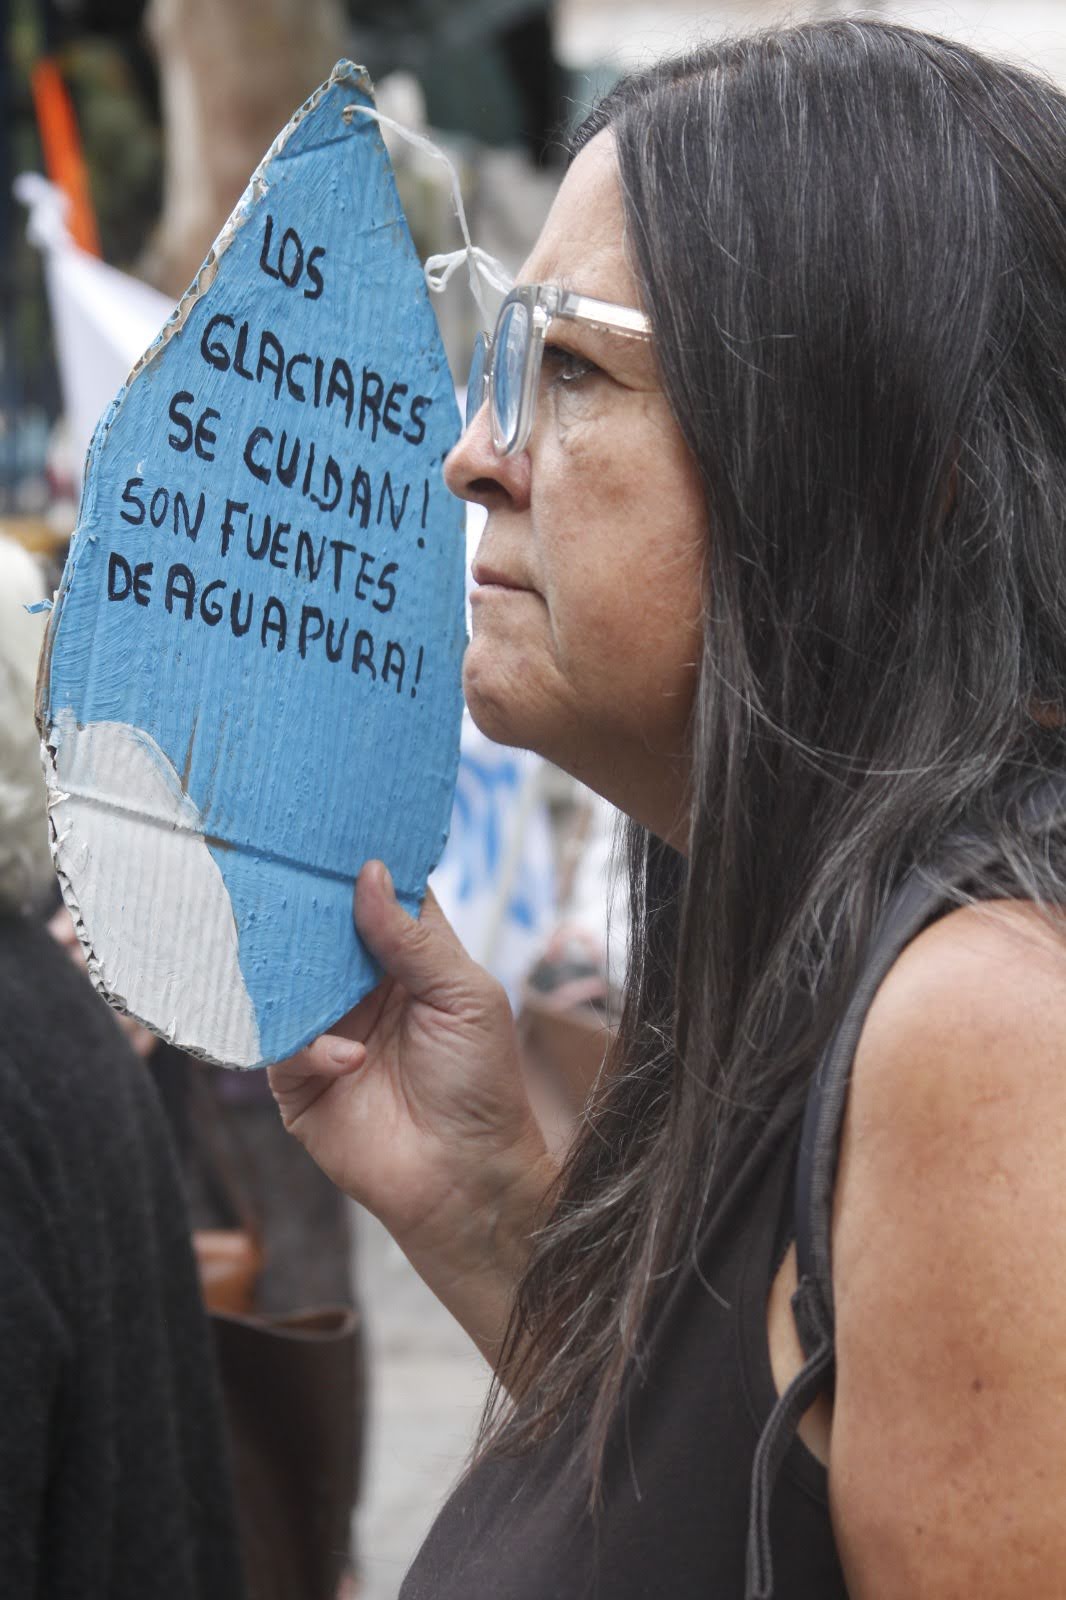 LOS
GLACIARES
SE CUIDAN!
SON FUENTES
DE AGUA PURA!